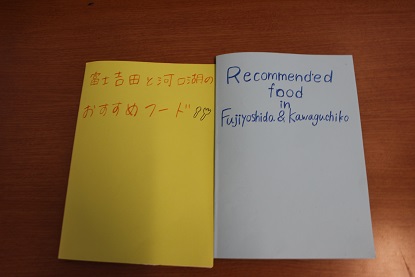 富士吉田と河口湖の
おすすめフード
Recommended
food
in
Fujiyoshida & Kawaguchiko